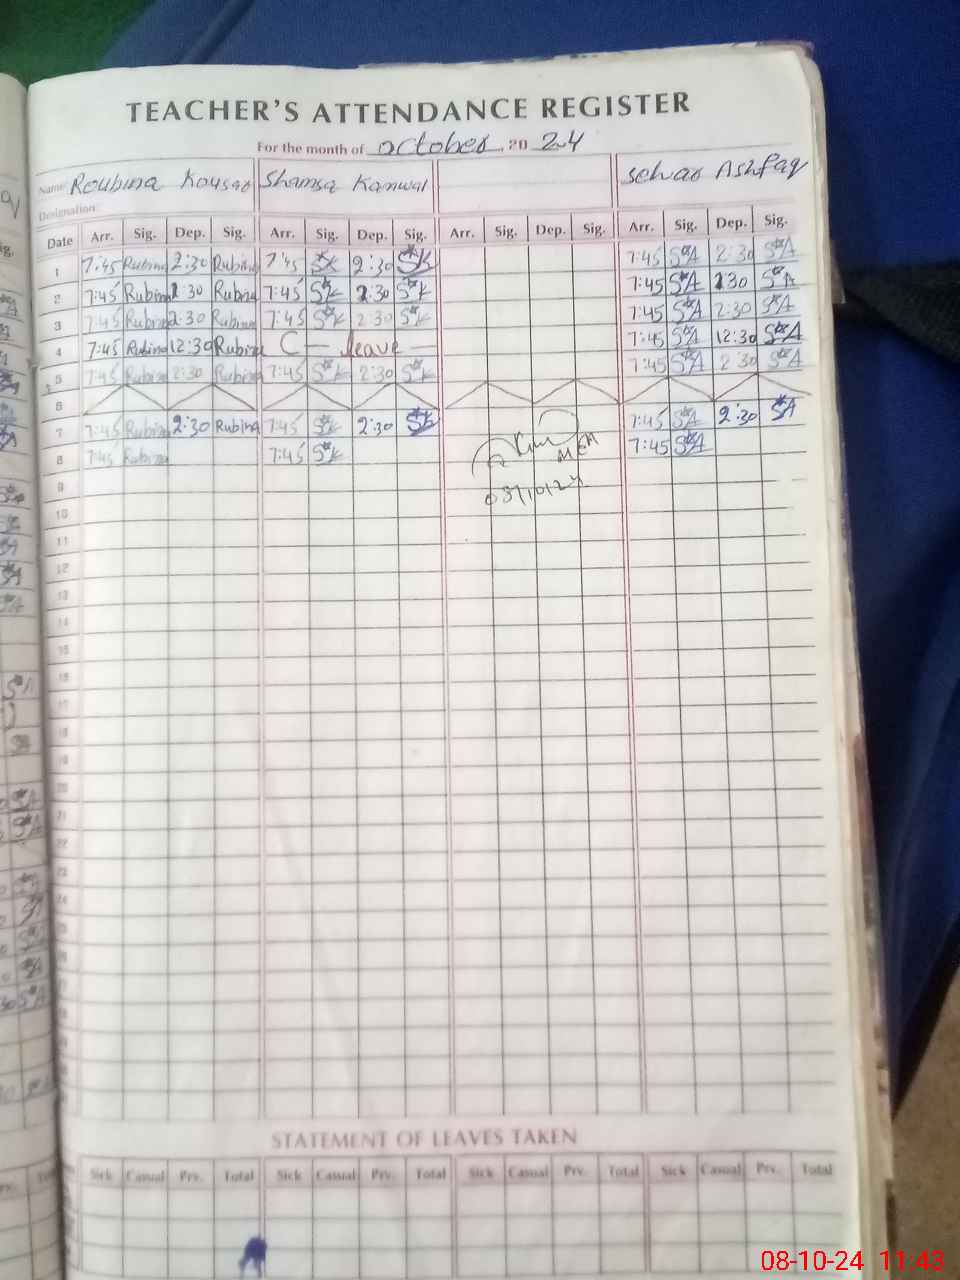 TEACHER'S ATTENDANCE REGISTER
For the month of October 2024
Name: Roubina Kousar Shamsa Kanwal Sehar Ashfaq
Designation:
Date Arr. Sig. Dep. Sig. Arr. Sig. Dep. Sig. Arr. Sig. Dep. Sig. Arr. Sig. Dep. Sig.
1 7:45 Rubina 2:30 Rubina 7:45 S*K 2:30 S*K 7:45 S*A 2:30 S*A
2 7:45 Rubina 2:30 Rubina 7:45 S*K 2:30 S*K 7:45 S*A 2:30 S*A
3 7:45 Rubina 2:30 Rubina 7:45 S*K 2:30 S*K 7:45 S*A 2:30 S*A
4 7:45 Rubina 12:30 Rubina C — leave — 7:45 S*A 12:30 S*A
5 7:45 Rubina 2:30 Rubina 7:45 S*K 2:30 S*K 7:45 S*A 2:30 S*A
6
7 7:45 Rubina 2:30 Rubina 7:45 S*K 2:30 S*K 7:45 S*A 2:30 S*A
8 7:45 Rubina 7:45 S*K 7:45 S*A
MEA
08/10/24
9
10
11
12
13
14
15
16
17
18
19
20
21
22
23
24
STATEMENT OF LEAVES TAKEN
Sick Casual Prv. Total Sick Casual Prv. Total Sick Casual Prv. Total Sick Casual Prv. Total
08-10-24 11:43